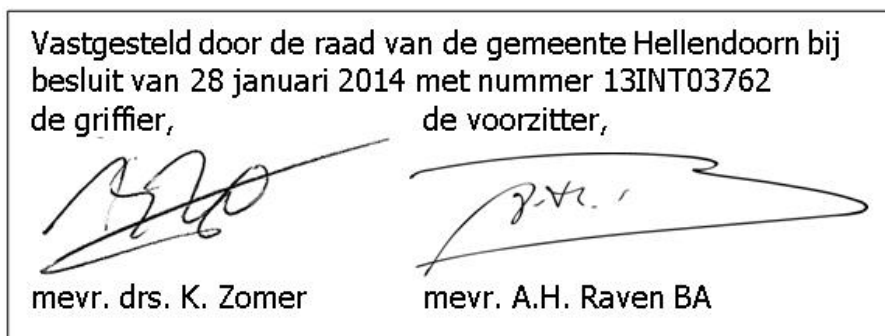 Vastgesteld door de raad van de gemeente Hellendoorn bij
besluit van 28 januari 2014 met nummer 13INT03762
de griffier, de voorzitter,
mevr. drs. K. Zomer mevr. A.H. Raven BA